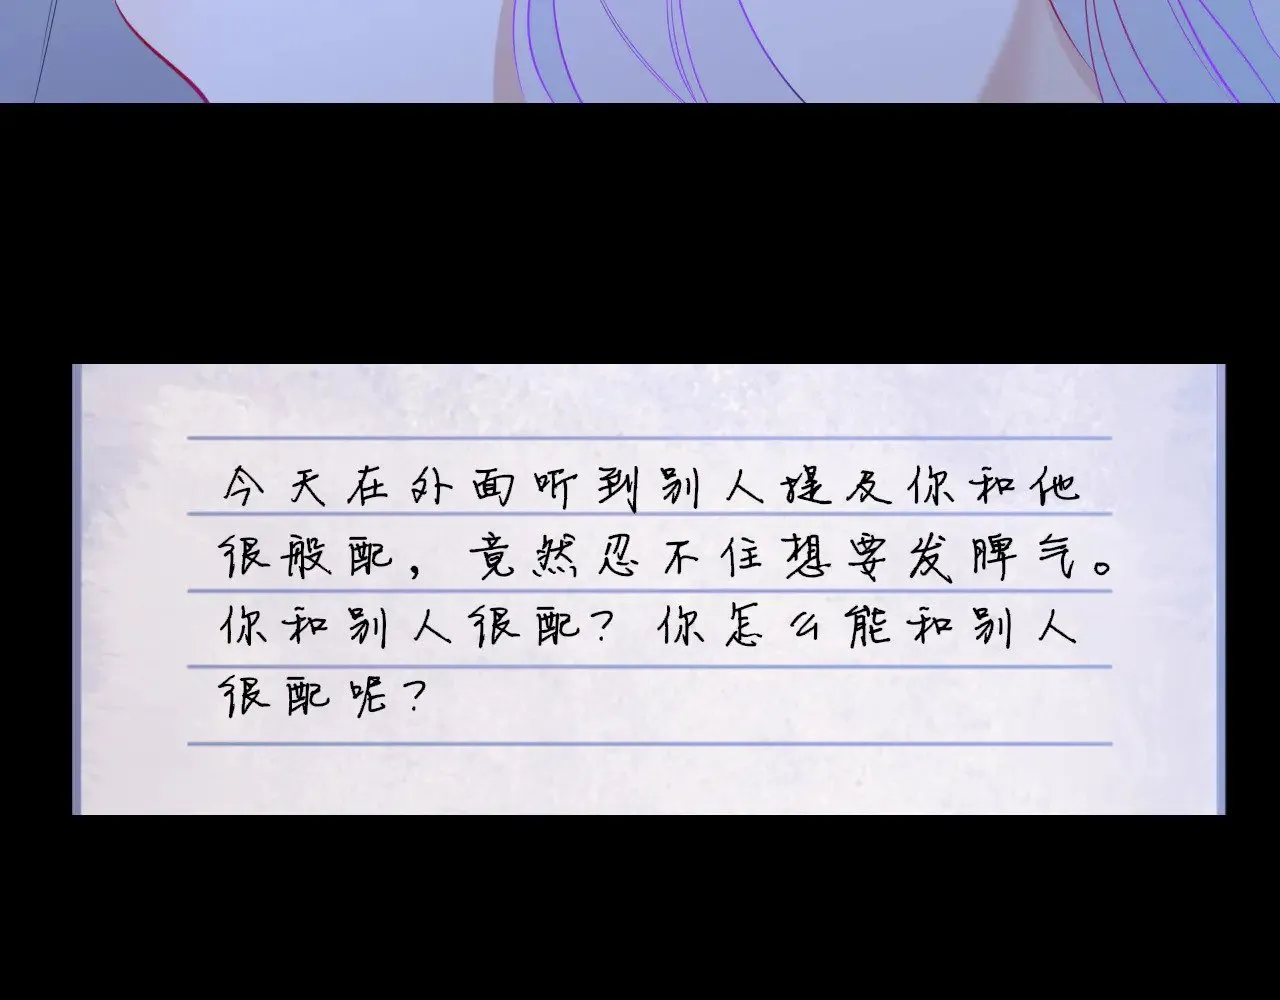 今天在外面听到别人提及你和他
很般配，竟然忍不住想要发脾气。
你和别人很配？你怎么能和别人
很配呢？